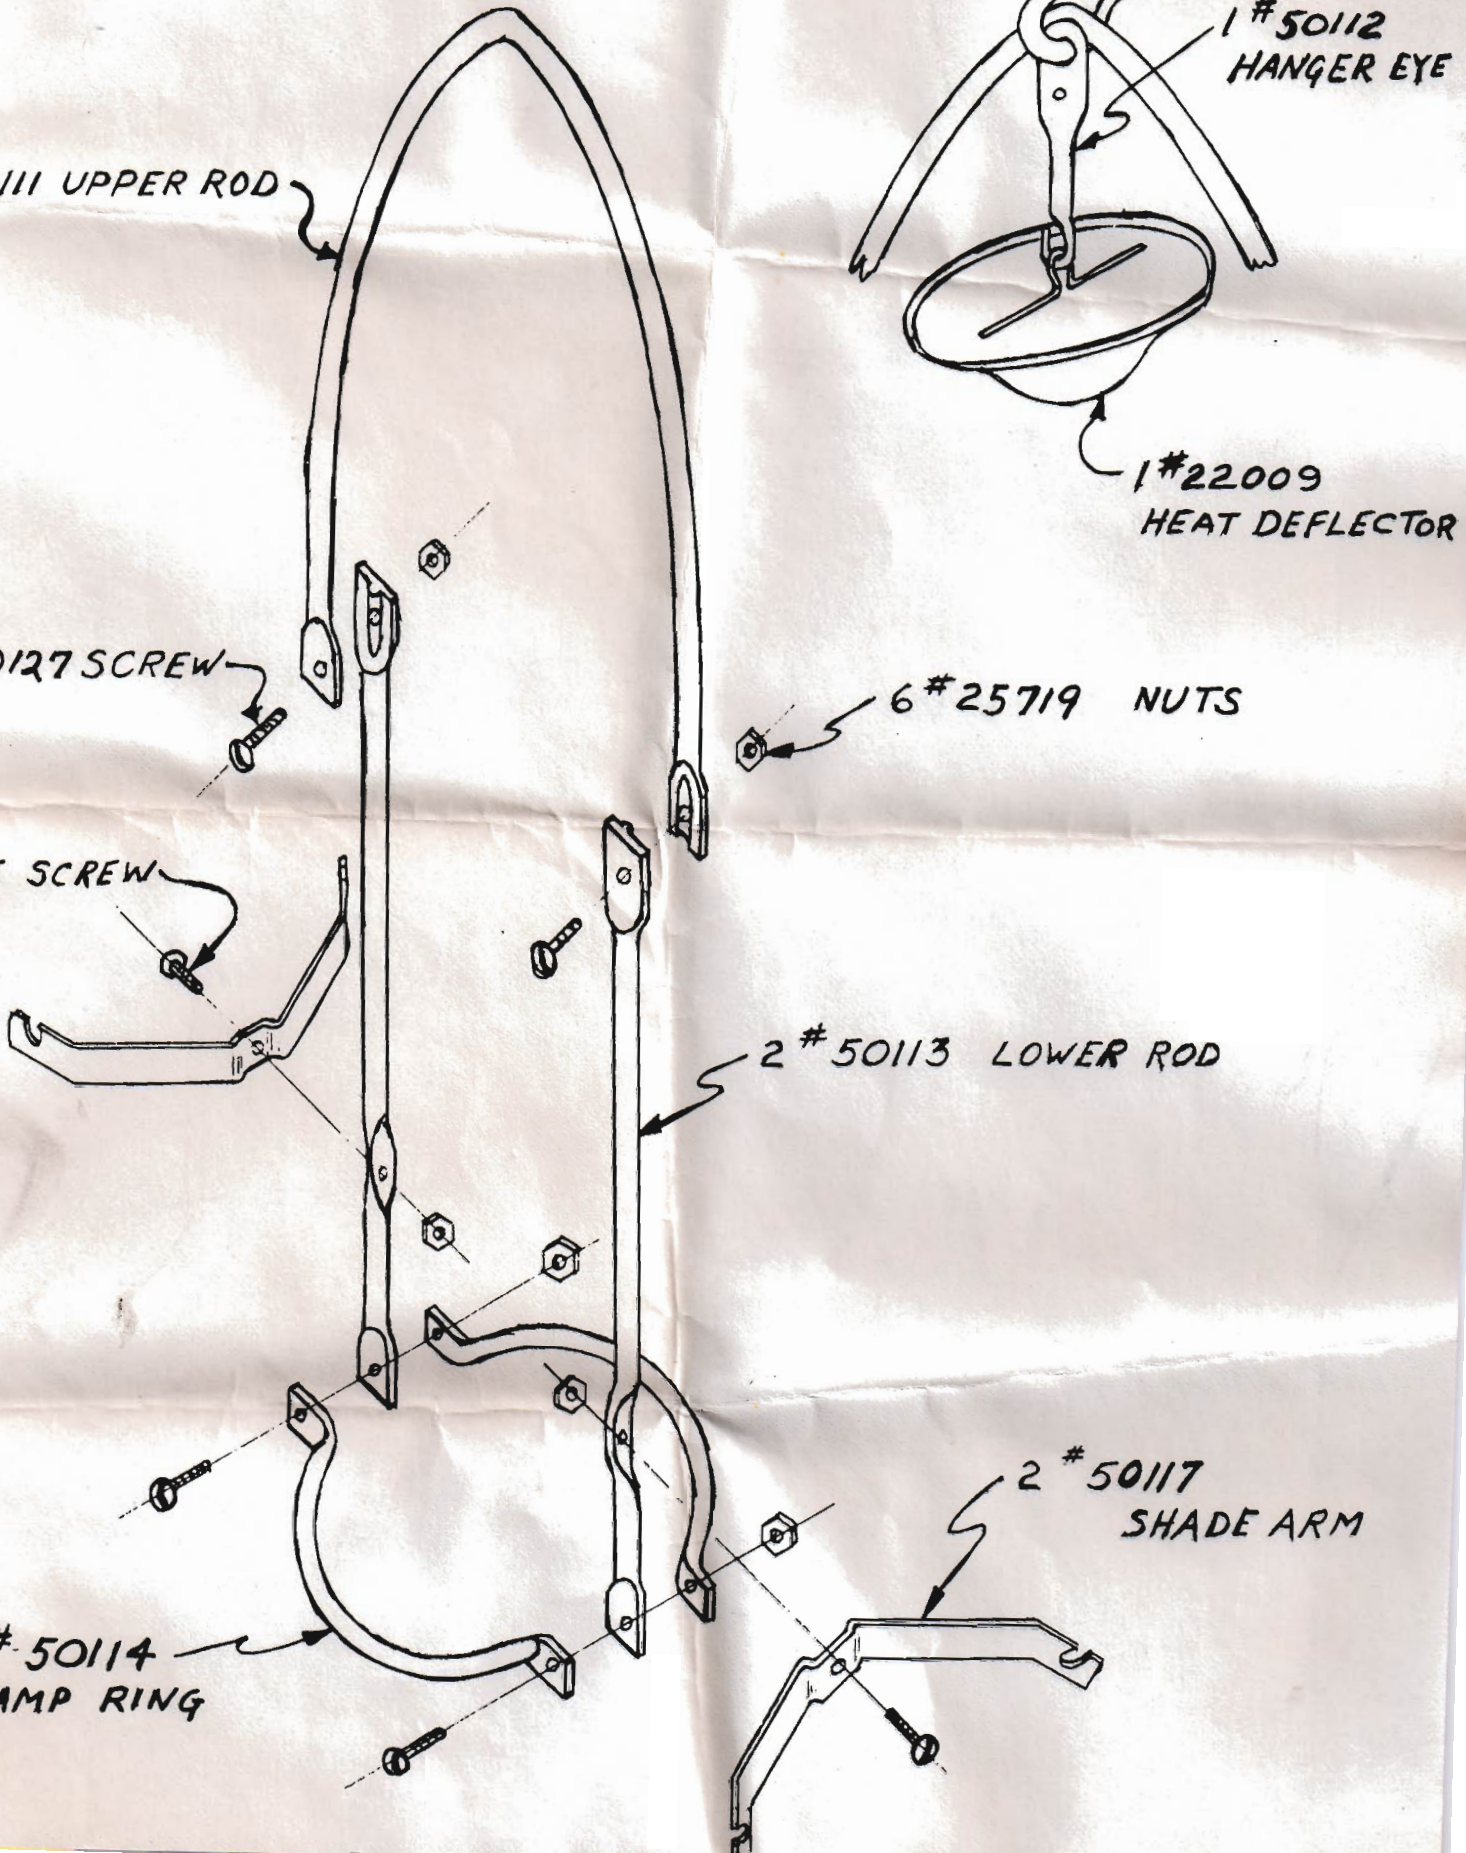 1 # 50112
HANGER EYE
111 UPPER ROD
1 # 22009
HEAT DEFLECTOR
0127 SCREW
6 # 25719 NUTS
SCREW
2 # 50113 LOWER ROD
2 # 50117
SHADE ARM
# 50114
AMP RING